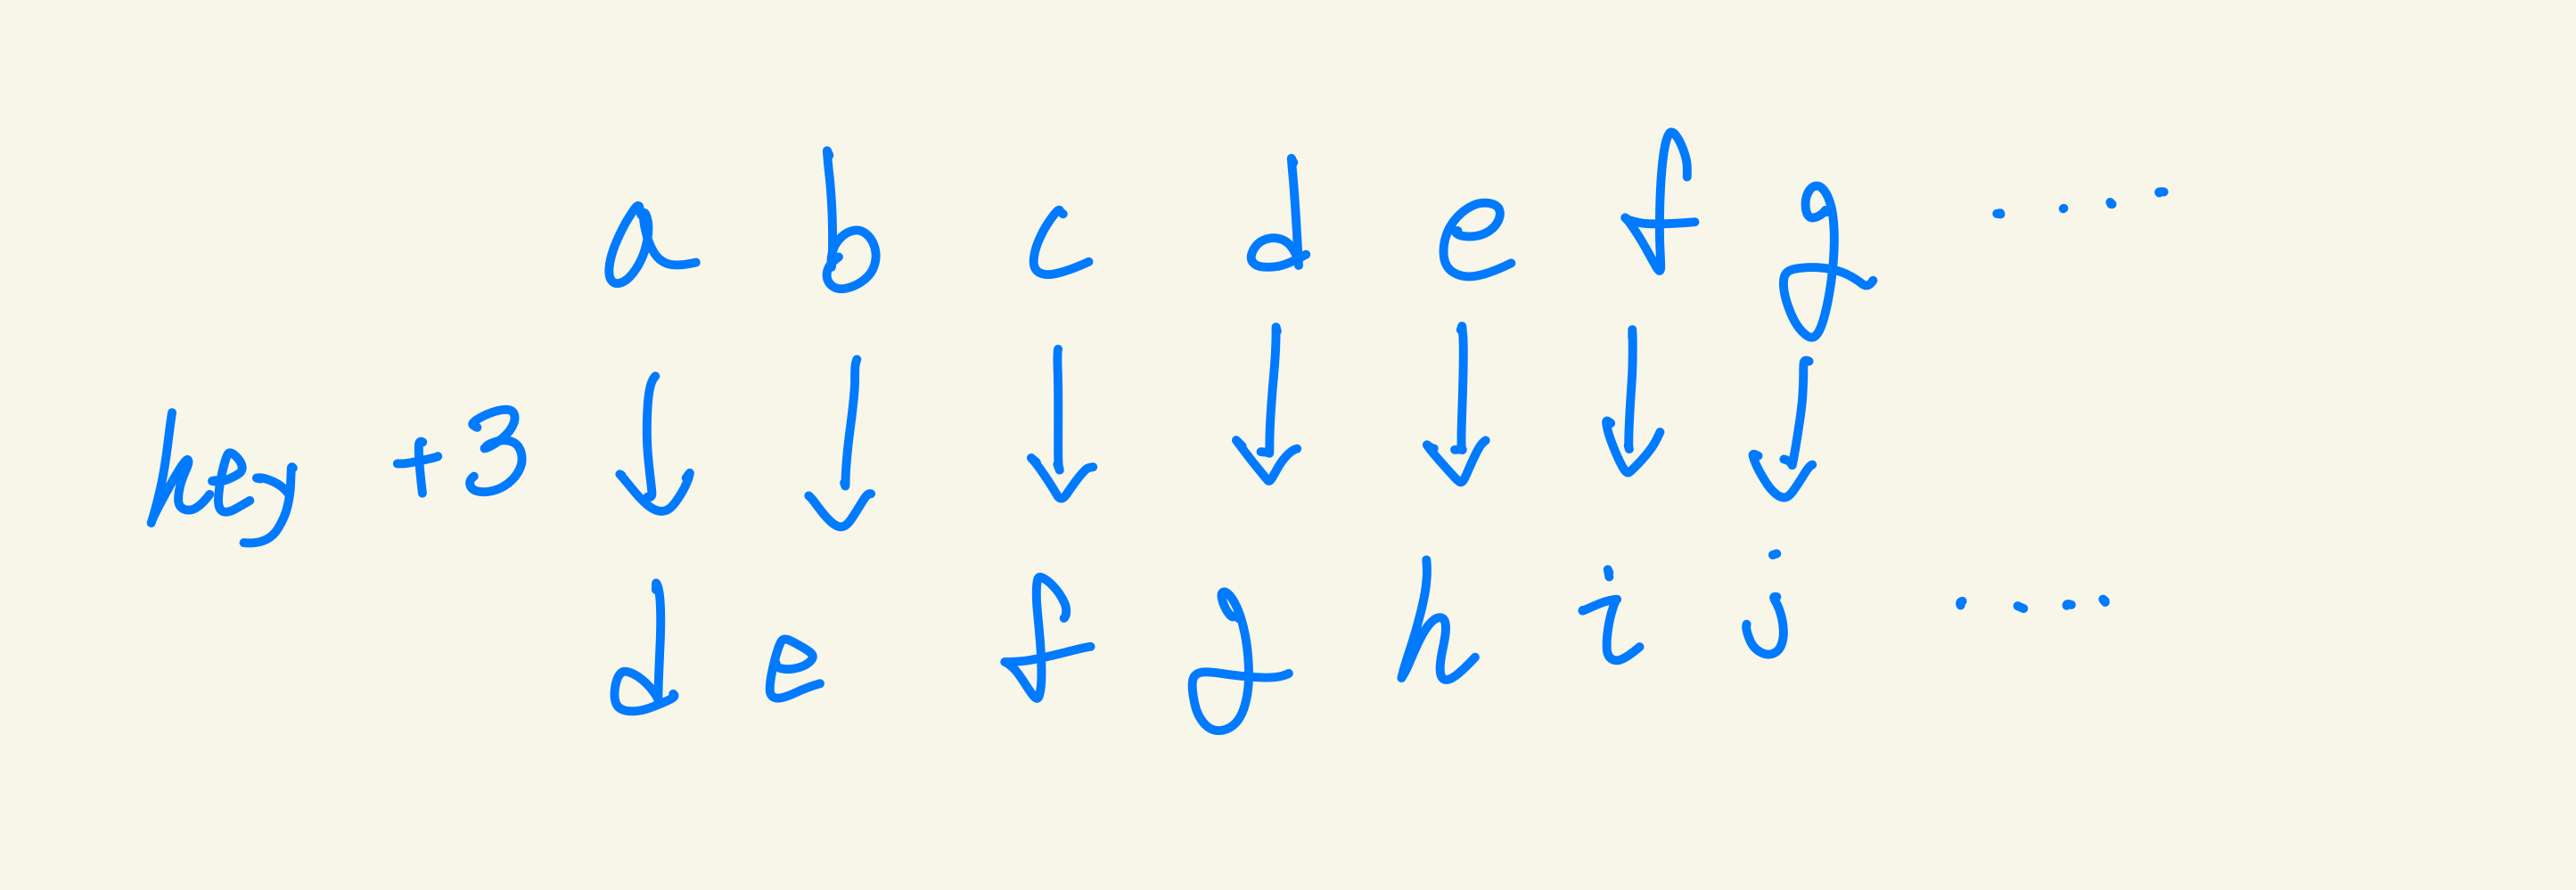 a b c d e f g ....
key +3 ↓ ↓ ↓ ↓ ↓ ↓ ↓
d e f g h i j ....